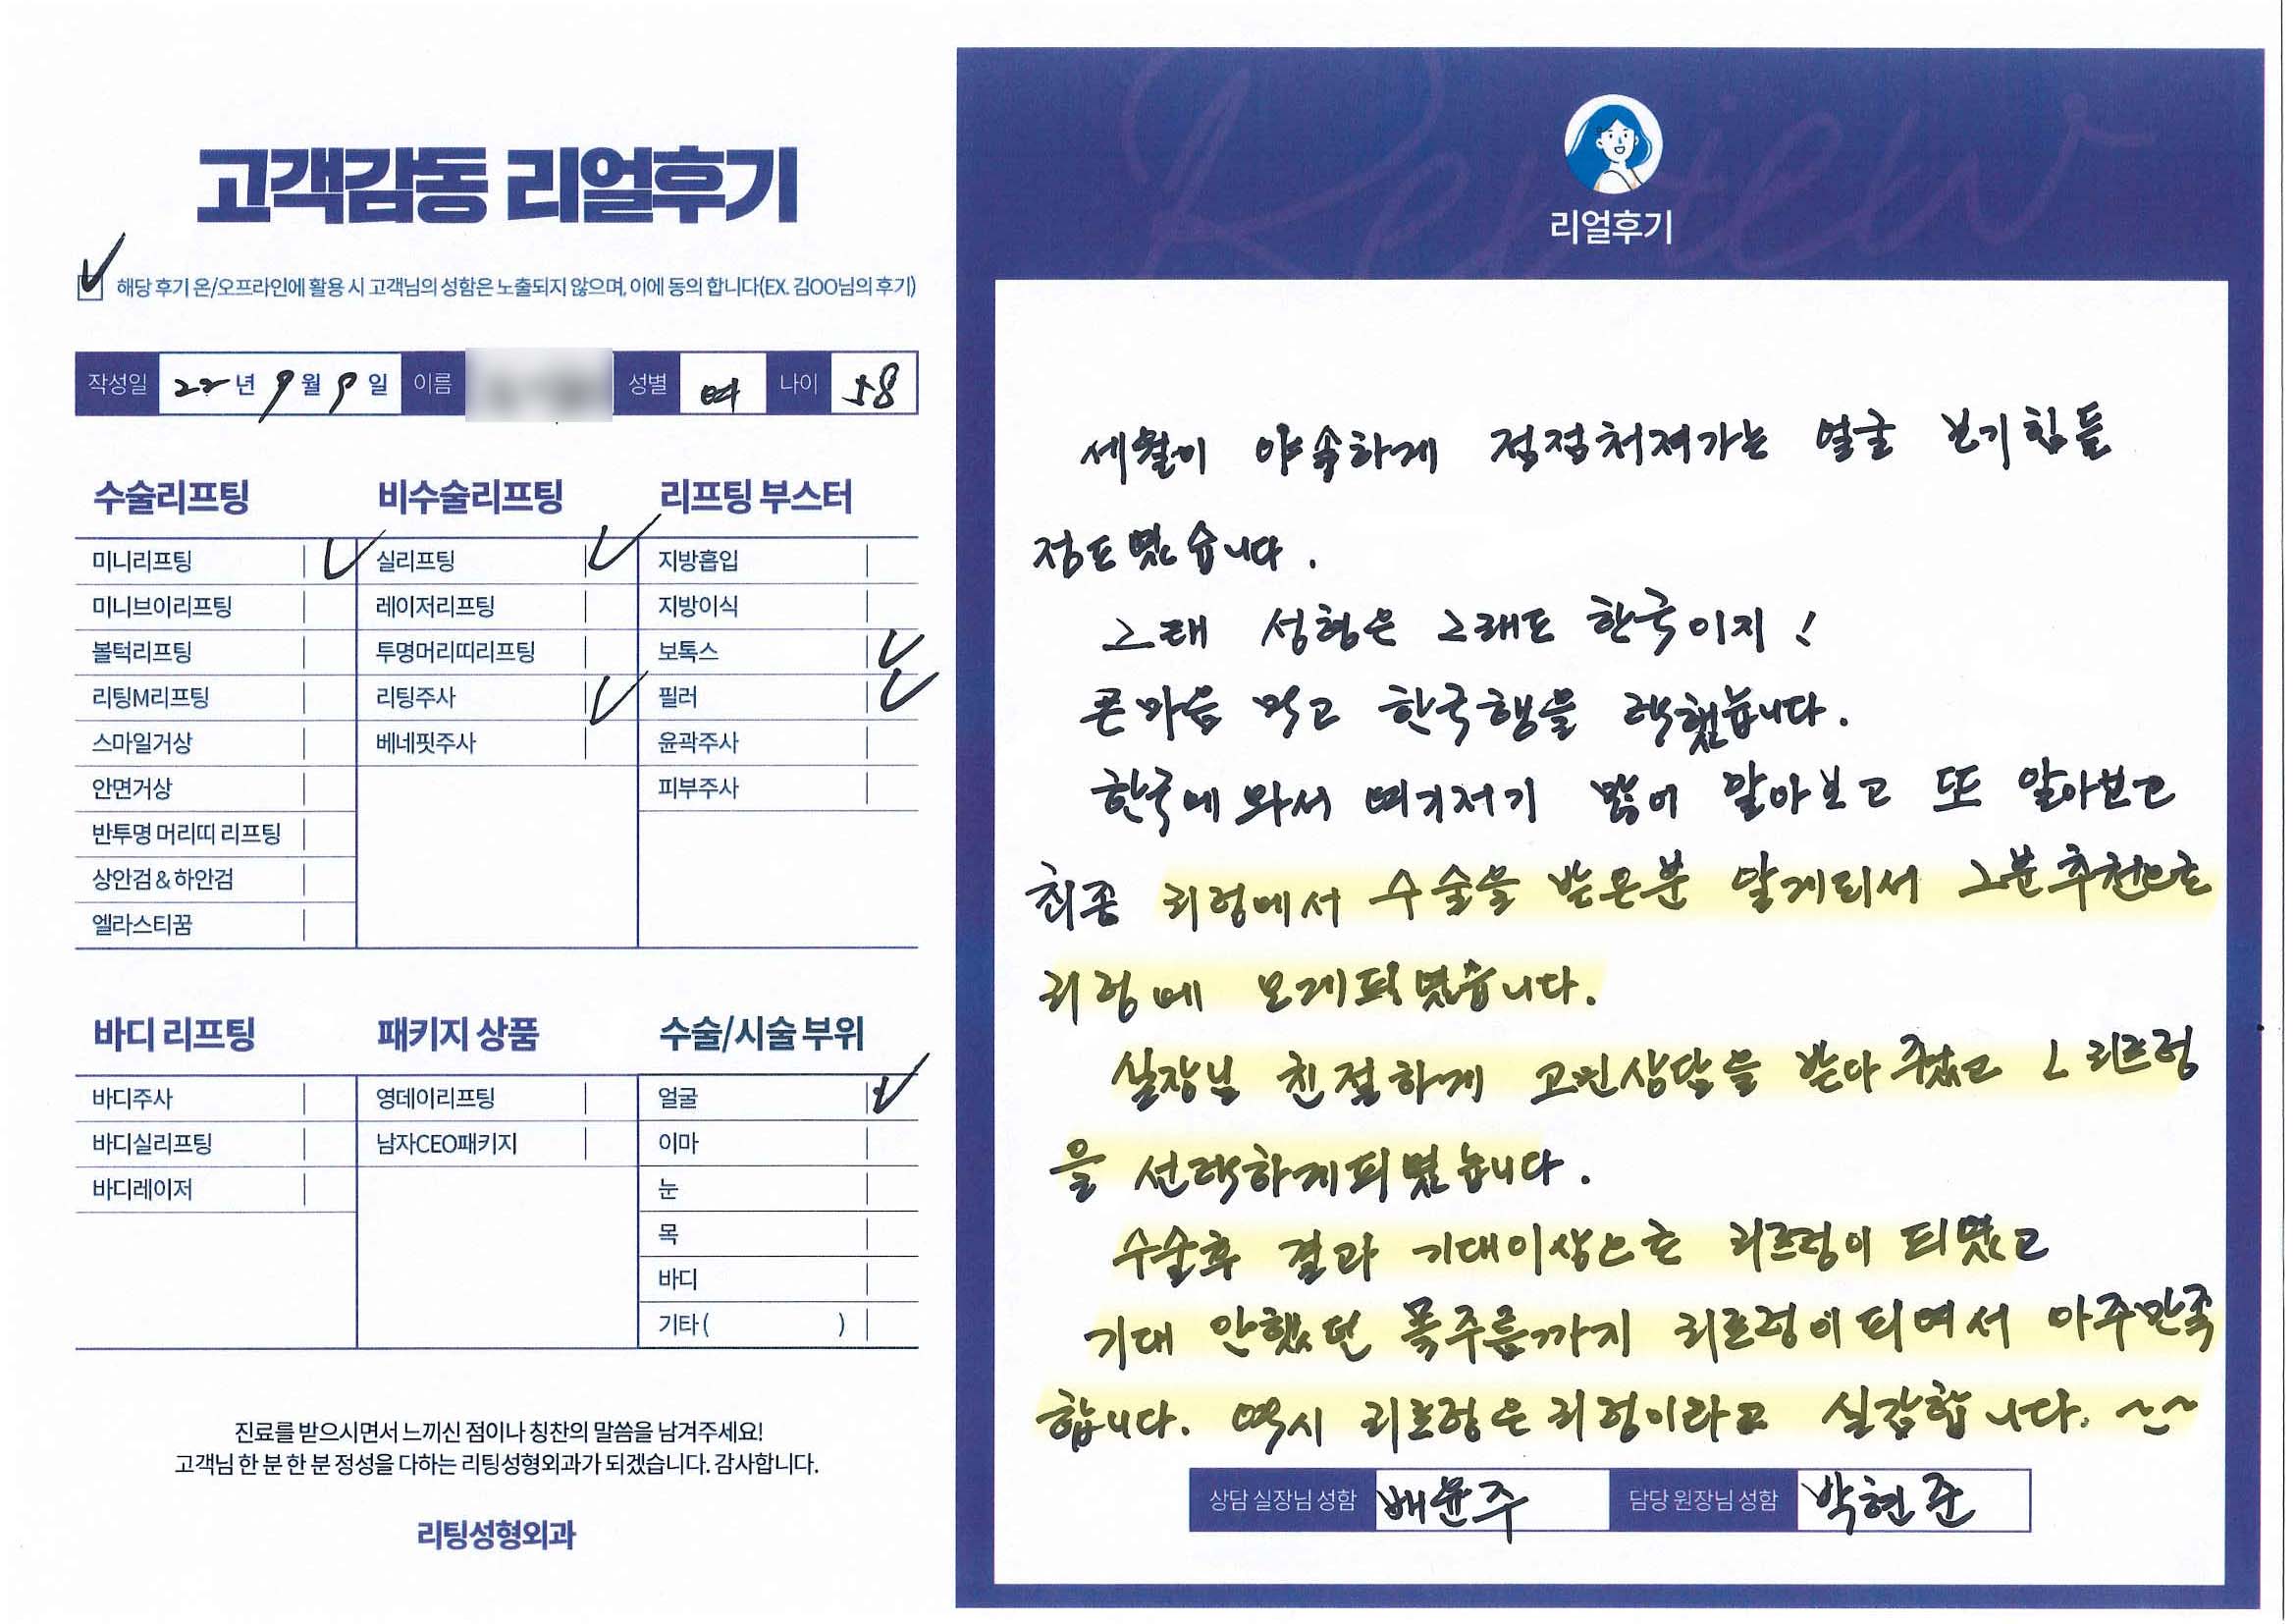 고객감동 리얼후기
해당 후기 온/오프라인에 활용 시 고객님의 성함은 노출되지 않으며, 이에 동의 합니다(EX. 김OO님의 후기)
작성일 22년 9월 9일 이름 성별 여 나이 58
수술리프팅 비수술리프팅 리프팅 부스터
미니리프팅 실리프팅 지방흡입
미니브이리프팅 레이저리프팅 지방이식
볼턱리프팅 투명머리띠리프팅 보톡스
리팅M리프팅 리팅주사 필러
스마일거상 베네핏주사 윤곽주사
안면거상 피부주사
반투명 머리띠 리프팅
상안검 & 하안검
엘라스티꿈
바디 리프팅 패키지 상품 수술/시술 부위
바디주사 영데이리프팅 얼굴
바디실리프팅 남자CEO패키지 이마
바디레이저 눈
목
바디
기타 ( )
진료를 받으시면서 느끼신 점이나 칭찬의 말씀을 남겨주세요!
고객님 한 분 한 분 정성을 다하는 리팅성형외과가 되겠습니다. 감사합니다.
리팅성형외과
Review
리얼후기
세월이 야속하게 점점처져가는 얼굴 보기힘들
정도였습니다.
그래 성형은 그래도 한국이지!
큰마음 먹고 한국행을 택했습니다.
한국에 와서 여기저기 많이 알아보고 또 알아보고
최종 리팅에서 수술을 받은분 알게되서 그분추천으로
리팅에 오게되였습니다.
실장님 친절하게 고민상담을 받아 주셨고 L 리프팅
을 선택하게되였습니다.
수술후 결과 기대이상으로 리프팅이 되였고
기대 안했던 목주름까지 리프팅이되여서 아주만족
합니다. 역시 리프팅은 리팅이라고 실감합니다. ~~
상담 실장님 성함 배윤주 담당 원장님 성함 박현준